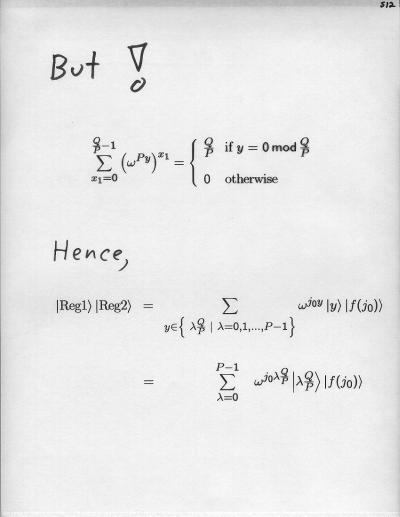 512
But !
$\sum_{x_1=0}^{\frac{Q}{P}-1} \left(\omega^{Py}\right)^{x_1} = \begin{cases} \frac{Q}{P} & \text{if } y = 0 \bmod \frac{Q}{P} \\ 0 & \text{otherwise} \end{cases}$
Hence,
$|\text{Reg1}\rangle\,|\text{Reg2}\rangle = \sum_{y\in\left\{\lambda\frac{Q}{P} \mid \lambda=0,1,\ldots,P-1\right\}} \omega^{j_0 y}\,|y\rangle\,|f(j_0)\rangle$
$= \sum_{\lambda=0}^{P-1} \omega^{j_0\lambda\frac{Q}{P}} \left|\lambda\frac{Q}{P}\right\rangle |f(j_0)\rangle$